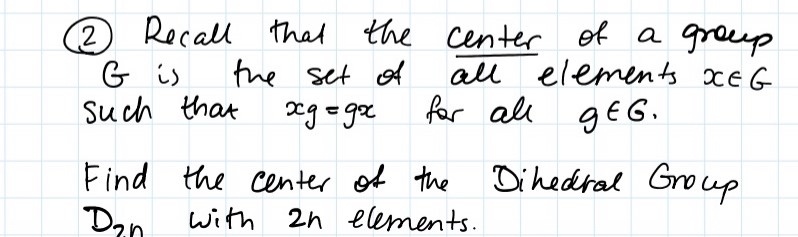 ② Recall that the center of a group
G is the set of all elements x∈G
such that xg=gx for all g∈G.
Find the center of the Dihedral Group
D₂ₙ with 2n elements.